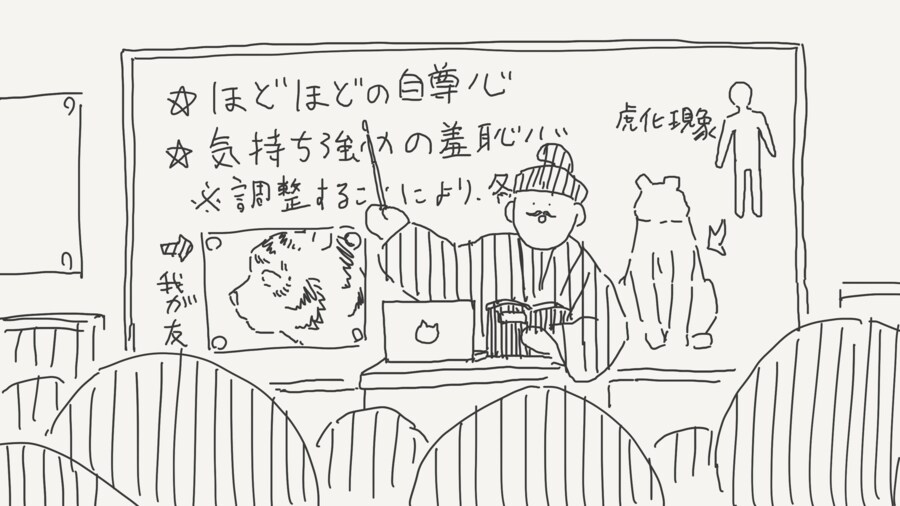 ☆ ほどほどの自尊心
☆ 気持ち強めの羞恥心
※調整することにより、各
虎化現象
⇨我が友